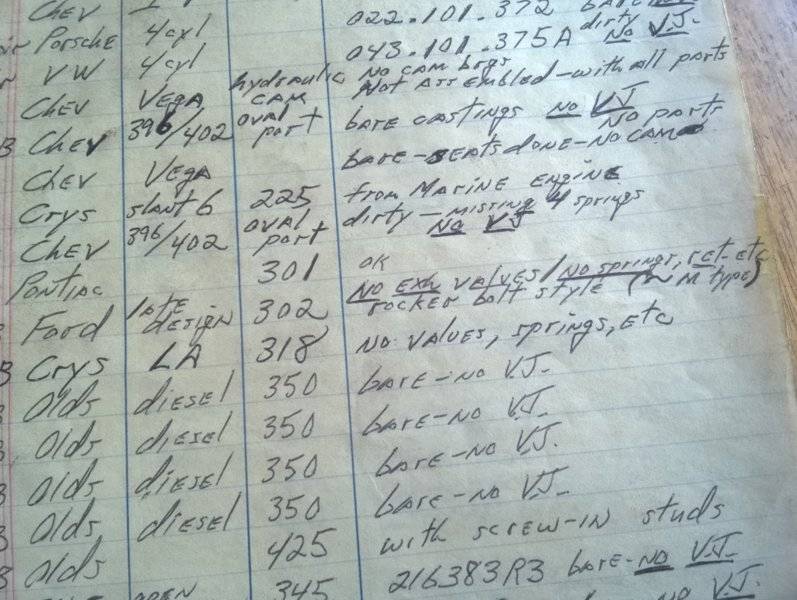 Chev 022.101.372
Porsche 4cyl 043.101.375A dirty No V.J.
VW 4cyl No cam brgs
Chev Vega hydraulic cam Not assembled - with all parts
Chev 396/402 oval port bare castings No VJ
Chev Vega bare - seats done - No cam No parts
Crys slant 6 225 from Marine Engine
Chev 396/402 oval port dirty - missing 4 springs No VJ
Pontiac 301 ok
Ford late design 302 No Exh valves/No springs, ret. etc rocker bolt style
Crys LA 318 No valves, springs, etc
Olds diesel 350 bare - no V.J.
Olds diesel 350 bare - no V.J.
Olds diesel 350 bare - no V.J.
Olds diesel 350 bare - no V.J.
Olds 425 with screw-in studs
345 216383R3 bare - no V.J.
no V.J.